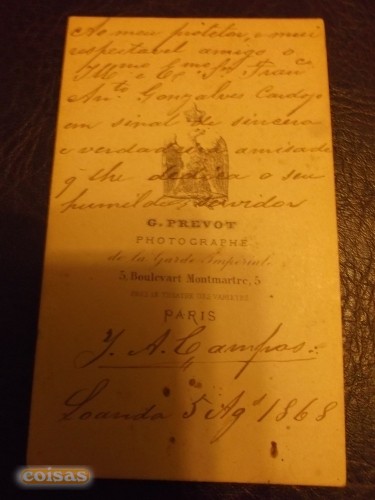 Ao meu protetor, e mui
respeitavel amigo o
Illmo Exmo Snr Franco
Anto Gonzalves Cardozo
em sinal de sincera
e verdadeira amisade
q lhe dedica o seu
humilde servidor
G. PREVOT
PHOTOGRAPHE
de la Garde Impérial
5, Boulevart Montmartre, 5
PRÈS LE THÉATRE DES VARIÉTÉS
PARIS
J. A. Campos.
Loanda 5 Agto 1868
coisas